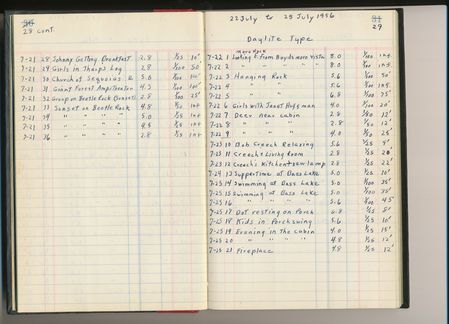 28 cont.
7-21 28 Johnny Getting Breakfast 2.8 1/25 10'
7-21 29 Girls in Tharps Log 2.8 1/100 50
7-21 30 Church of Sequoias 5.6 1/100 100'
7-21 31 Giant Forest Ampitheater 4.5 1/100 100'
7-21 32 Group on Beetle Rock 2.8 1/100 25'
7-21 33 Sunset on Beetle Rock 4.8 inf
7-21 34 " " " " 5.0 1/25 inf
7-21 35 " " " " 4.5 1/25 inf
7-21 36 " " " " 2.8 1/25 inf
22 July to 25 July 1956
29
Daylite Type
moro Rock
7-22 1 Looking E. from Boyds more Vista 8.0 1/100 inf
7-22 2 " " " " 8.0 1/100 inf.
7-22 3 Hanging Rock 5.6 1/100 50'
7-22 4 " " 5.6 1/100 50'
7-22 5 " " 6.8 1/100 75'
7-22 6 Girls with Janet Huffman 4.0 1/100 20'
7-22 7 Deer near cabin 2.8 12'
7-22 8 " " " 2.8 12'
7-22 9 " " " 4.0 25'
7-23 10 Bub Creech Relaxing 5.6 1/25 9'
7-23 11 Creech's Living Room 2.8 1/25 20'
7-23 12 Creech's Kitchen + sew lamp 2.8 1/25 22'
7-24 13 Suppertime at Bass Lake 5.0 1/25 10'
7-25 14 Swimming at Bass Lake 5.0 1/100 35'
7-25 15 Swimming at Bass Lake 5.0 1/100 35'
7-25 16 " " " " 5.6 1/100 45'
7-25 17 Dot resting on Porch 6.3 1/25 8'
7-25 18 Kids in Porch swing 5.6 1/25 10'
7-25 19 Evening in the cabin 4.0 1/25 15'
7-25 20 " " " " 4.8 1/25 12'
7-25 21 Fireplace 4.8 1/25 12'